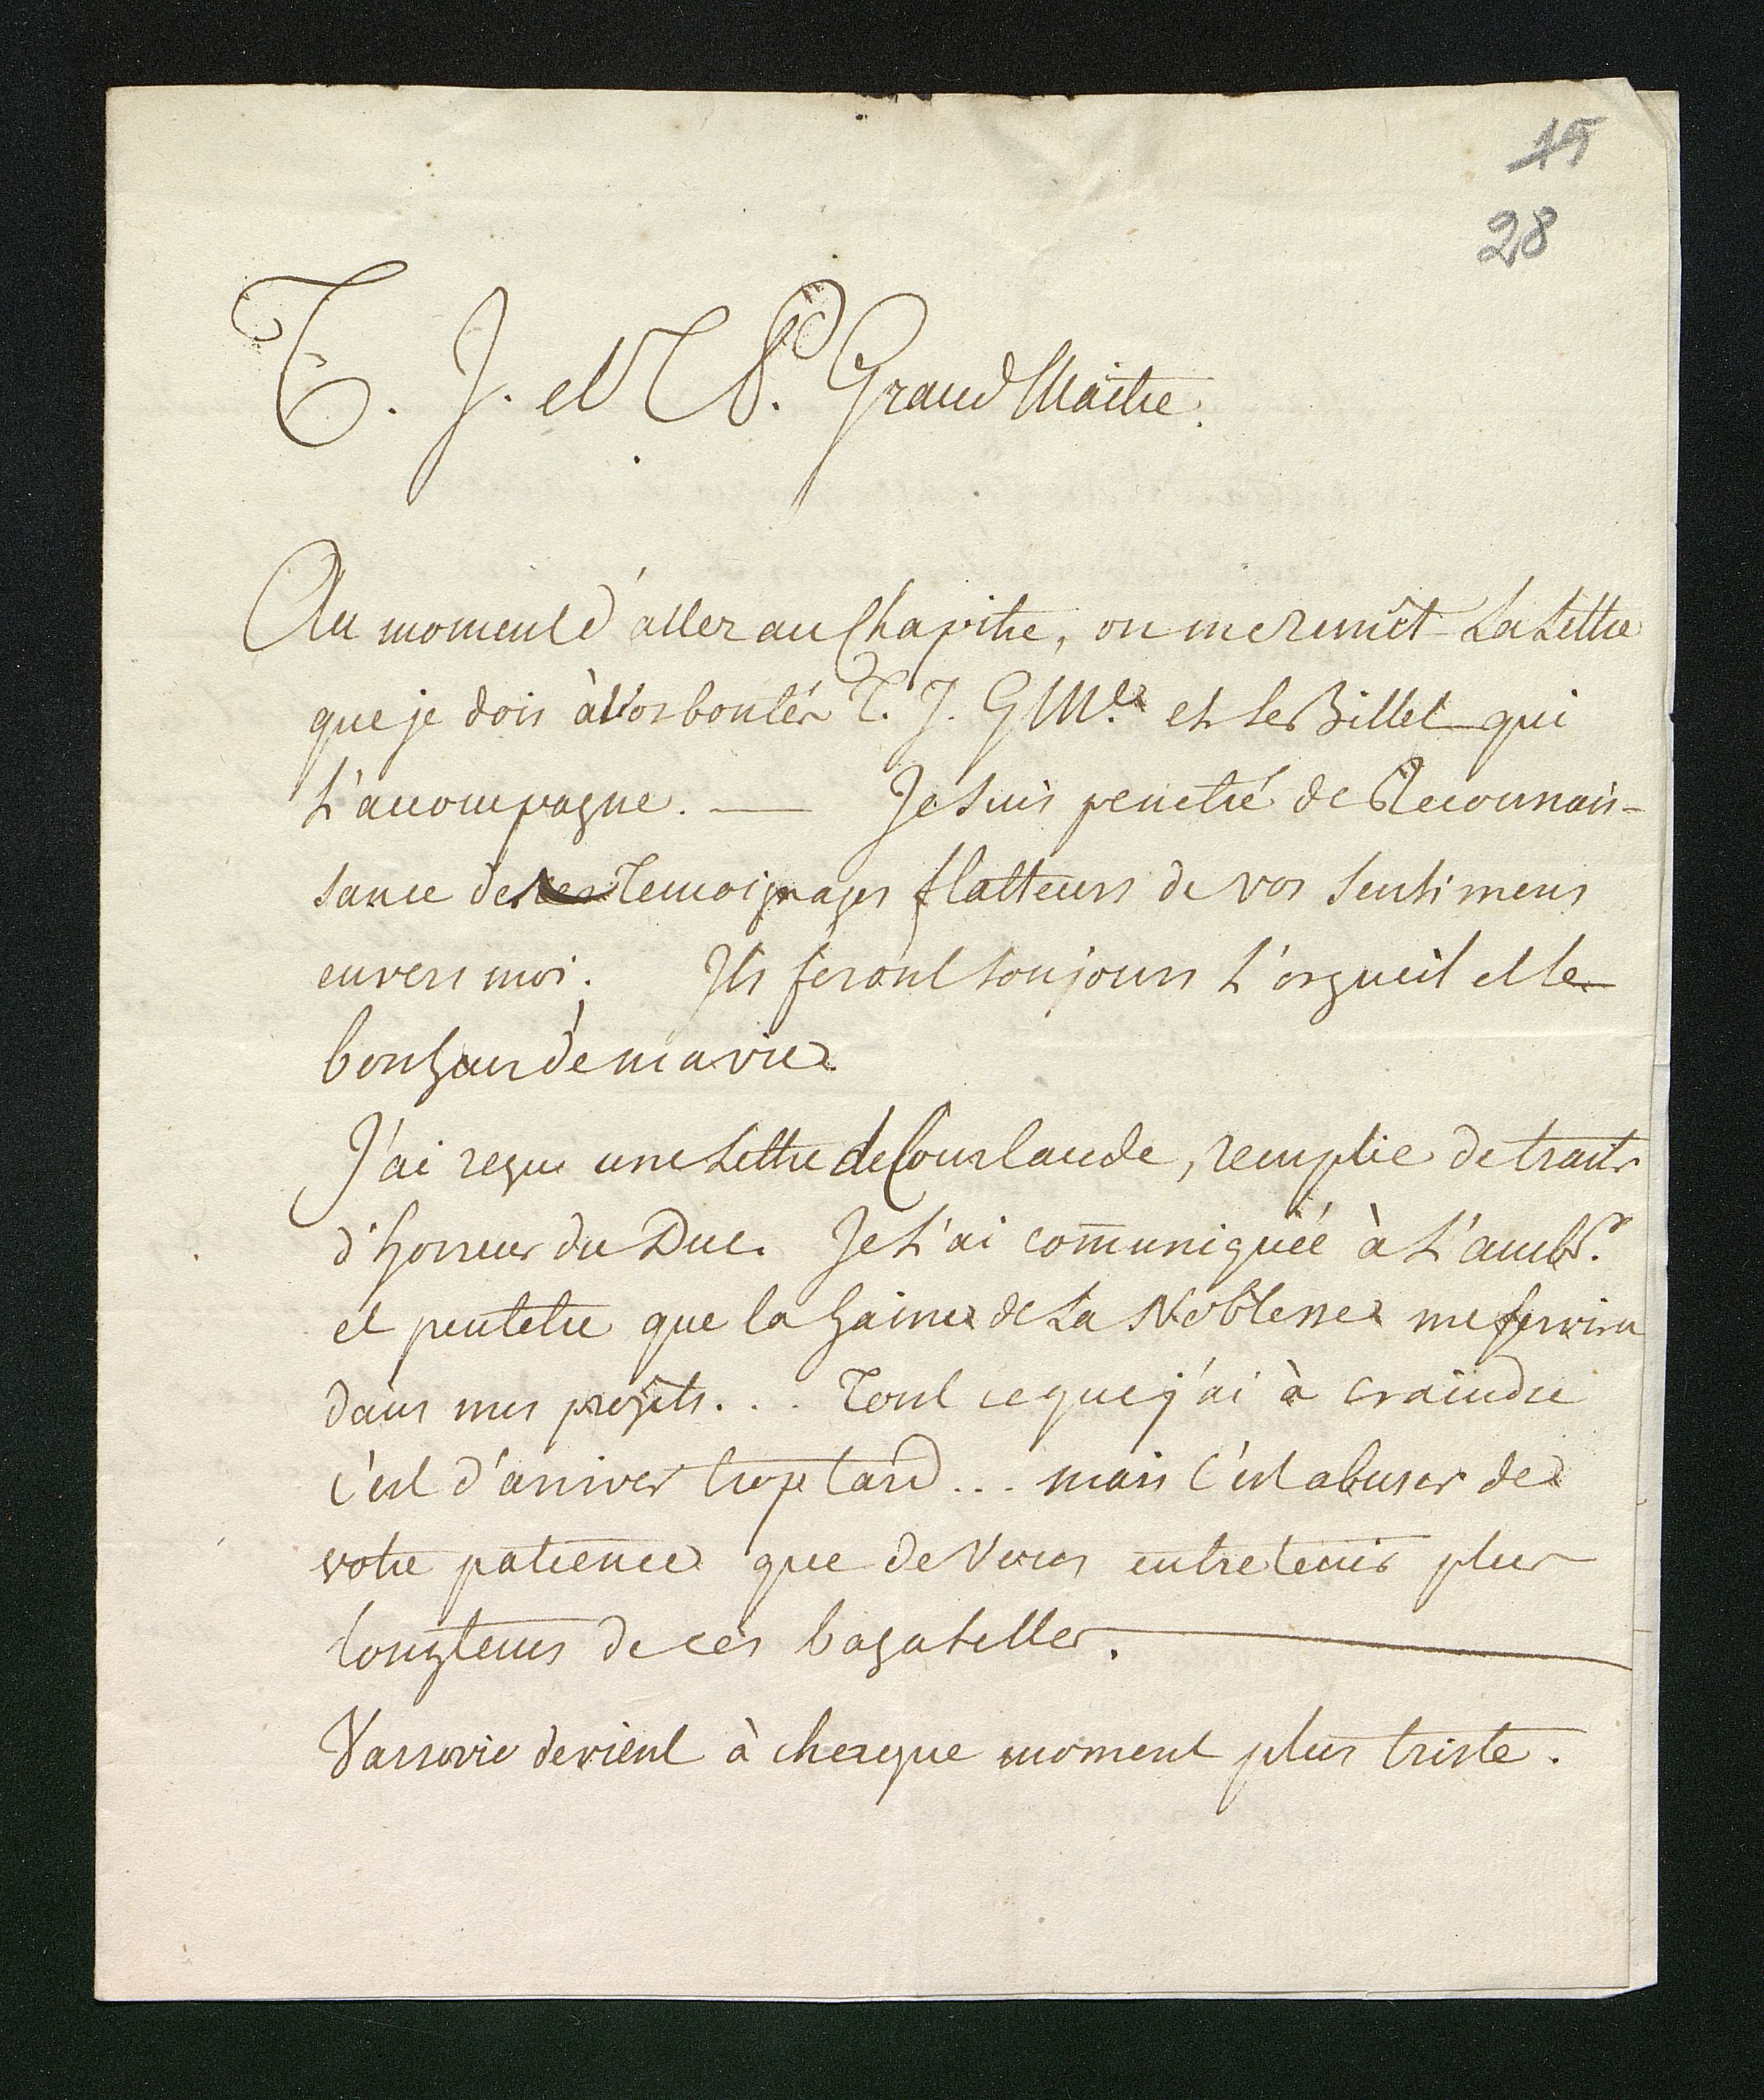 15
28
T. J. et T. R. Grand Maitre.
Au moment d'aller au Chapitre, on me remêt La Lettre
que je dois à Vos bontés T. J. G M.e et le Billet qui
L'accompagne. — Je suis penetré de Reconnais-
sance de ces Temoignages flatteurs de vos sentimens
envers moi. Ils feront toujours L'orgueil et le
bonheur de ma vie.
J'ai reçu une Lettre de Courlande, remplie de traits
d'horreur du Duc. Je L'ai communiquée à L'ambr.
et peutetre que la haine de La Noblesse me servira
dans mes projets... Tout ce que j'ai à craindre
c'est d'arriver trop tard... mais c'est abuser de
votre patience que de Vous entretenir plus
longtems de ces bagatelles. —
Varsovie devient à cheque moment plus triste.